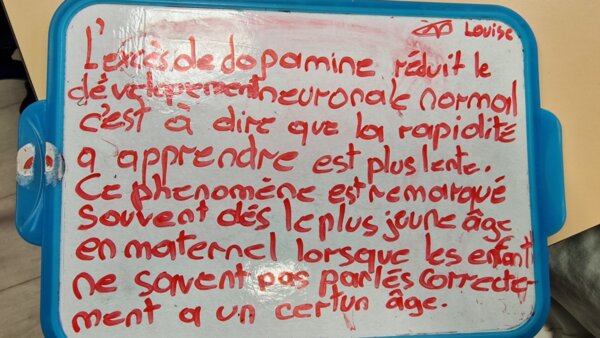 Louise
L'excès de dopamine réduit le
développement neuronale normal
c'est à dire que la rapidité
a apprendre est plus lente.
Ce phenomène est remarqué
Souvent dés le plus jeune âge
en maternel lorsque les enfant
ne savent pas parlés correcte-
ment a un certun âge.